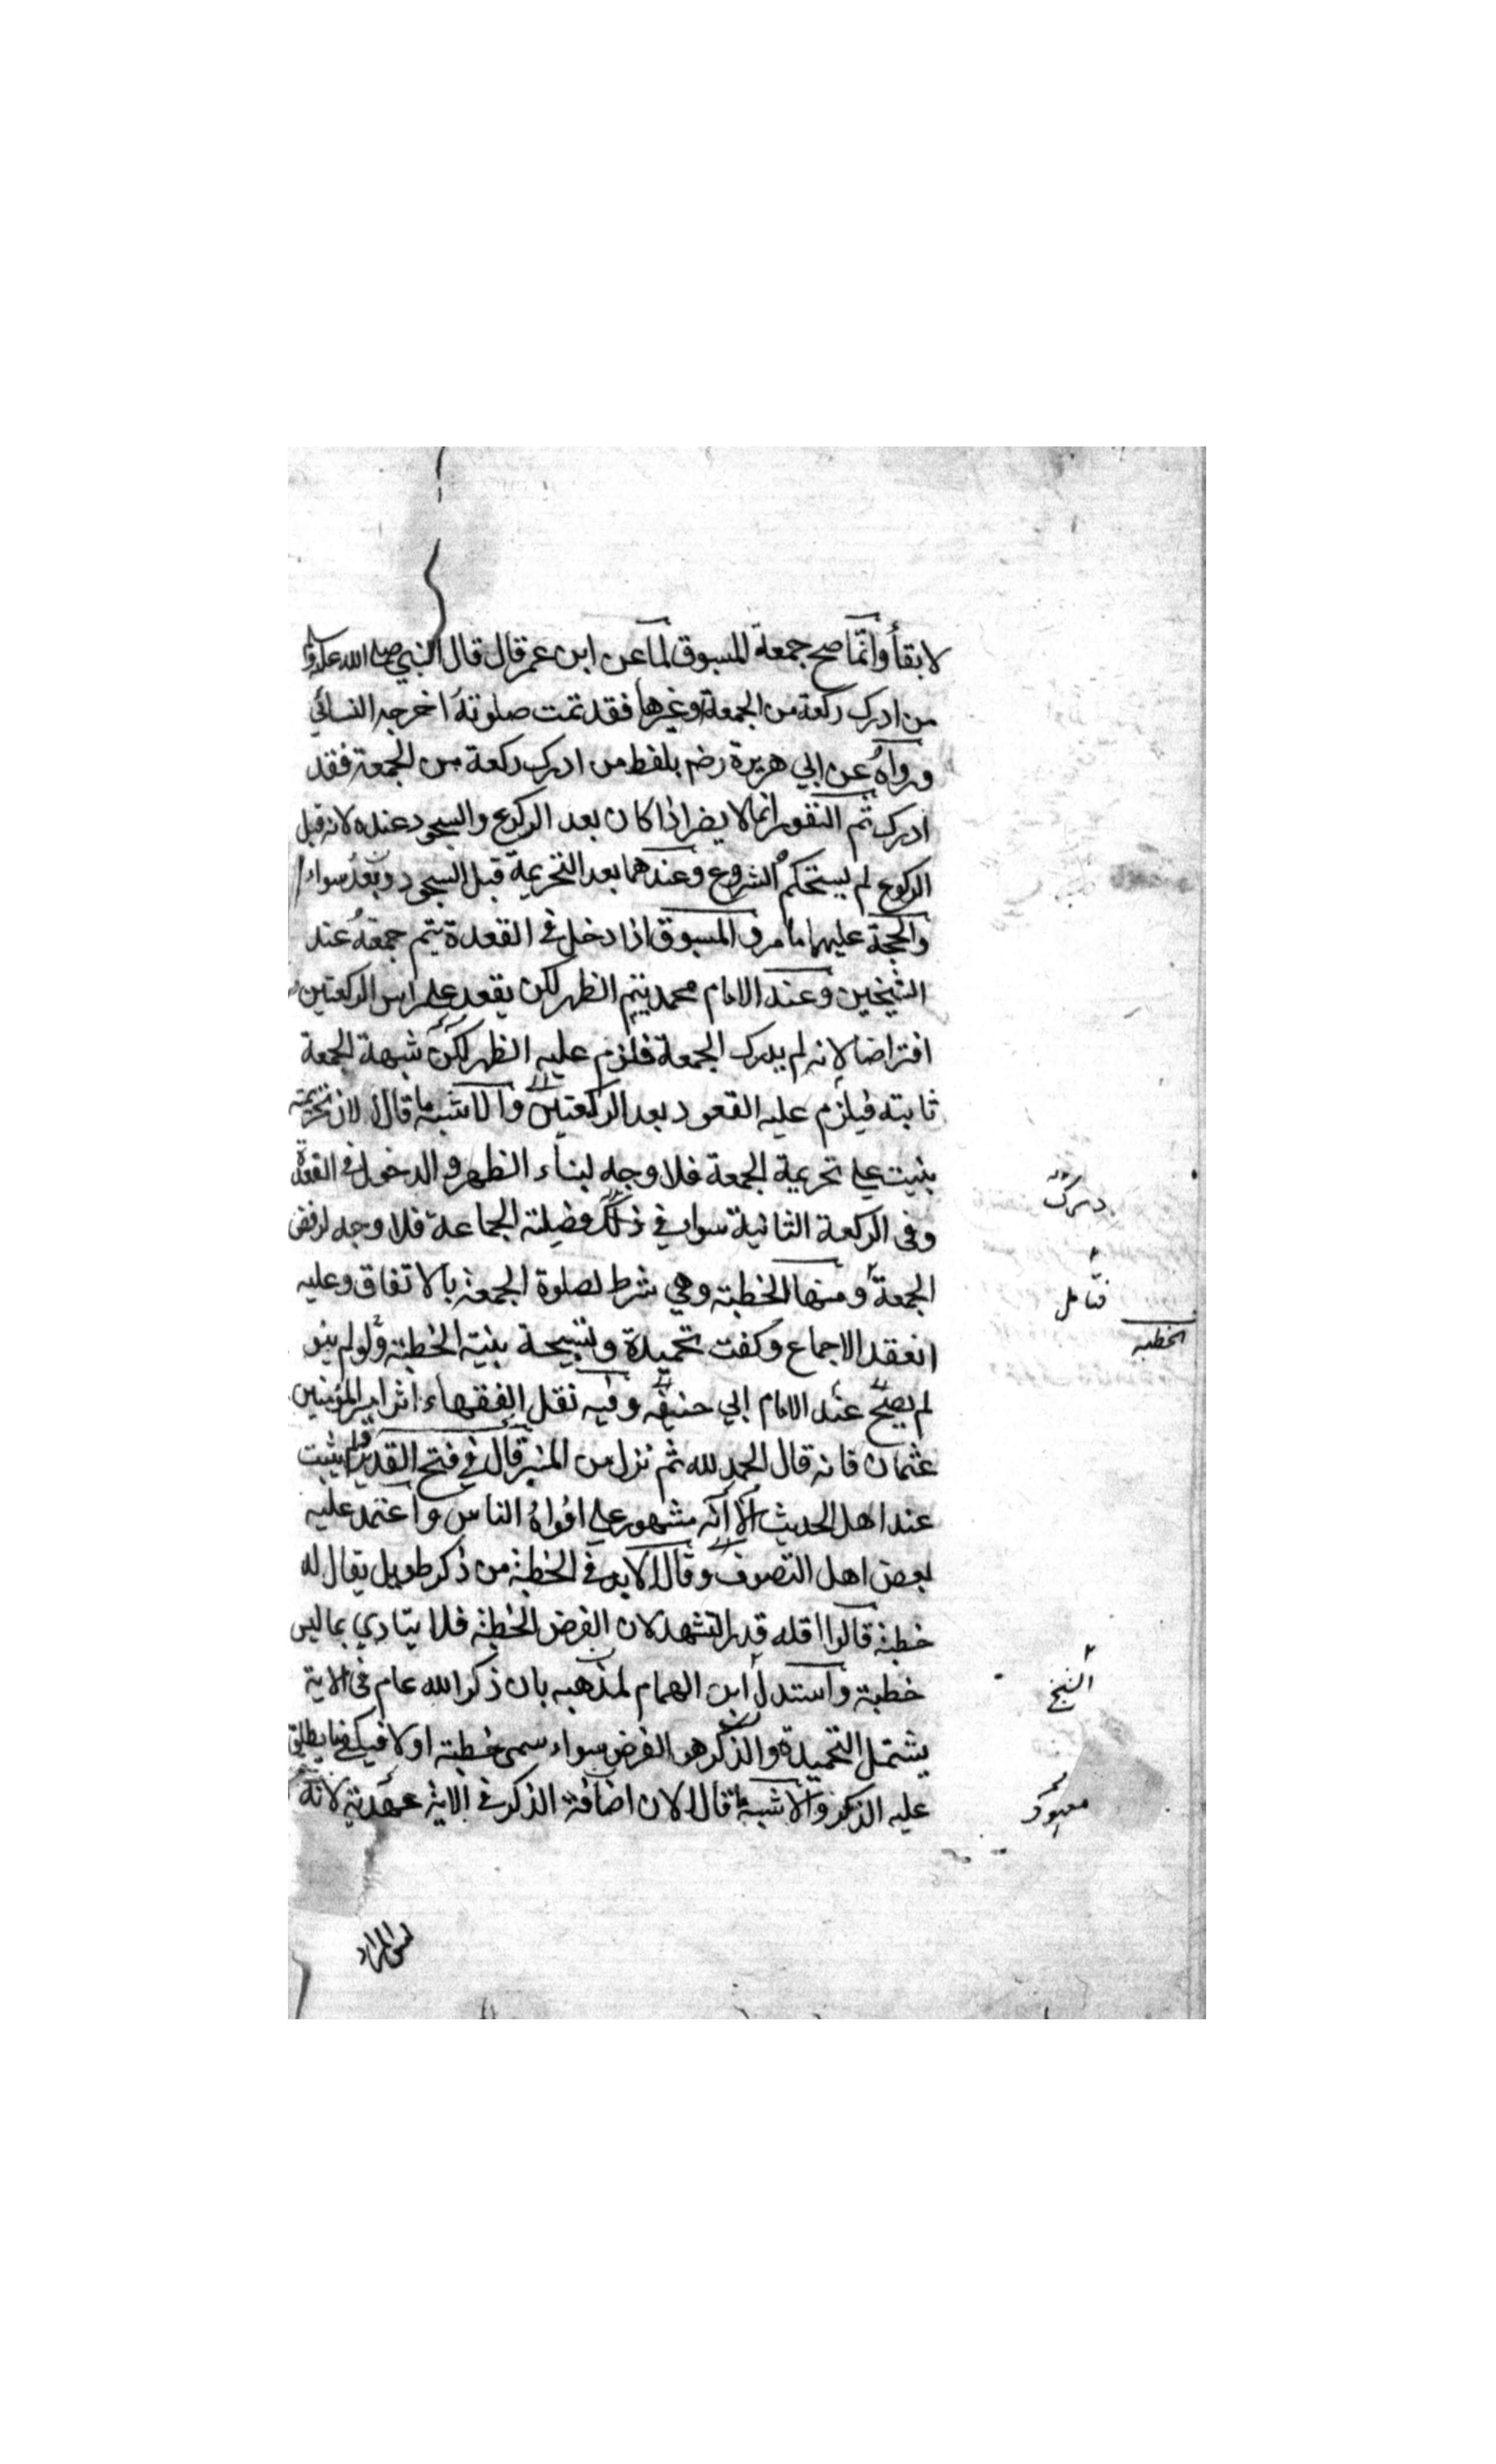 لا بقاء وانما صح جمعة المسبوق لما عن ابن عمر قال قال النبي صلى الله عليه و
من ادرك ركعة من الجمعة او غيرها فقد تمت صلوته اخرجه النسائي
ورواه عن ابي هريرة رضـ بلفظ من ادرك ركعة من الجمعة فقد
ادرك ثم النفور انما لا يضر اذا كان بعد الركوع والسجود عنده لانه قبل
الركوع لم يستحكم الشروع وعندهما بعد التحريمة قبل السجود وبعده سواء
والحجة عليهما ما مر و المسبوق اذا دخل في القعدة يتم جمعة عند
الشيخين وعند الامام محمد يتم الظهر لكن يقعد على راس الركعتين
افتراضا لانه لم يدرك الجمعة فلزم عليه الظهر لكن شبهة الجمعة
ثابتة فيلزم عليه القعود بعد الركعتين والاشبه ما قالا لان تحريمته
بنيت على تحريمة الجمعة فلا وجه لبناء الظهر و الدخول في القعدة
وفي الركعة الثانية سواء في ذلك فضيلة الجماعة فلا وجه لرفض
الجمعة ومنها الخطبة وهي شرط لصلوة الجمعة بالاتفاق وعليه
انعقد الاجماع وكفت تحميدة وتسبيحة بنية الخطبة ولو لم ينو
لم يصح عند الامام ابي حنيفة وفيه نقل الفقهاء اثر امير المؤمنين
عثمان فانه قال الحمد لله ثم نزل من المنبر قال في فتح القدير لم يثبت
عند اهل الحديث الا انه مشهور على افواه الناس واعتمد عليه
بعض اهل التصوف وقالا لا بد في الخطبة من ذكر طويل يقال له
خطبة قالوا اقله قدر التشهد لان الفرض الخطبة فلا يتادي بما ليس
خطبة واستدل ابن الهمام لمذهبه بان ذكر الله عام في الاية
يشتمل التحميدة والذكر هو الفرض سواء سمى خطبة او لا فيكفي ما يطلق
عليه الذكر والاشبه ما قالا لان اضافة الذكر في الاية عهدية لانه
فتامل
الخطبة
الشيخ
ليس المراد